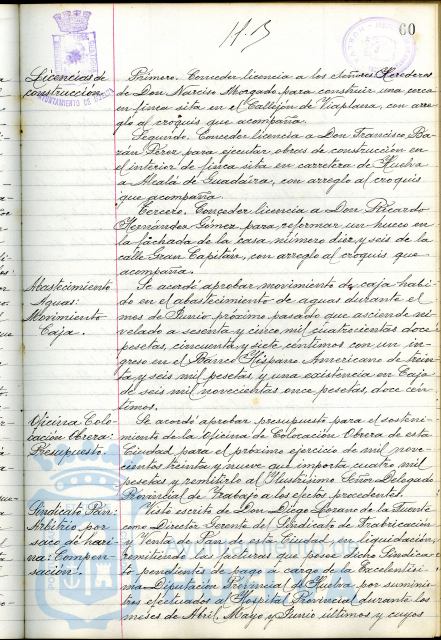 60
Licencias de
construcción.
AYUNTAMIENTO DE
Primero. Conceder licencia a los Señores Herederos
de Don Narciso Morgado para construir una cerca
en finca sita en el Callejón de Viaplana, con arre-
glo al croquis que acompaña.
Segundo. Conceder licencia a Don Francisco Ba-
zán Pérez para ejecutar obras de construcción en
el interior de finca sita en carretera de Huelva
a Alcalá de Guadaira, con arreglo al croquis
que acompaña.
Tercero. Conceder licencia a Don Ricardo
Hernández Gómez para reformar un hueco en
la fachada de la casa número diez y seis de la
calle Gran Capitán, con arreglo al croquis que
acompaña.
Abastecimiento
Aguas:
Movimiento
Caja.
Se acordó aprobar movimiento de caja habi-
do en el abastecimiento de aguas durante el
mes de Junio próximo pasado que asciende ni-
velado a sesenta y cinco mil cuatrocientas doce
pesetas, cincuenta y siete céntimos con un in-
greso en el Banco Hispano Americano de trein-
ta y seis mil pesetas y una existencia en Caja
de seis mil novecientas once pesetas, doce cén-
timos.
Oficina Colo-
cación Obrera:
Presupuesto.
Se acordó aprobar presupuesto para el sosteni-
miento de la Oficina de Colocación Obrera de esta
Ciudad, para el próximo ejercicio de mil nove-
cientos treinta y nueve que importa cuatro mil
pesetas y remitirlo al Ilustrísimo Señor Delegado
Provincial de Trabajo a los efectos procedentes.
Sindicato Pan:
Arbitrio por
saco de hari-
na: Compen-
sación.
Visto escrito de Don Diego Lozano de la Fuente
como Director Gerente del Sindicato de Fabricación
y Venta de Pan de esta Ciudad, en liquidación,
remitiendo las facturas que posee dicho Sindica-
to pendientes de pago a cargo de la Excelentísi-
ma Diputación Provincial de Huelva por suminis-
tros efectuados al Hospital Provincial durante los
meses de Abril, Mayo y Junio últimos y cuyos